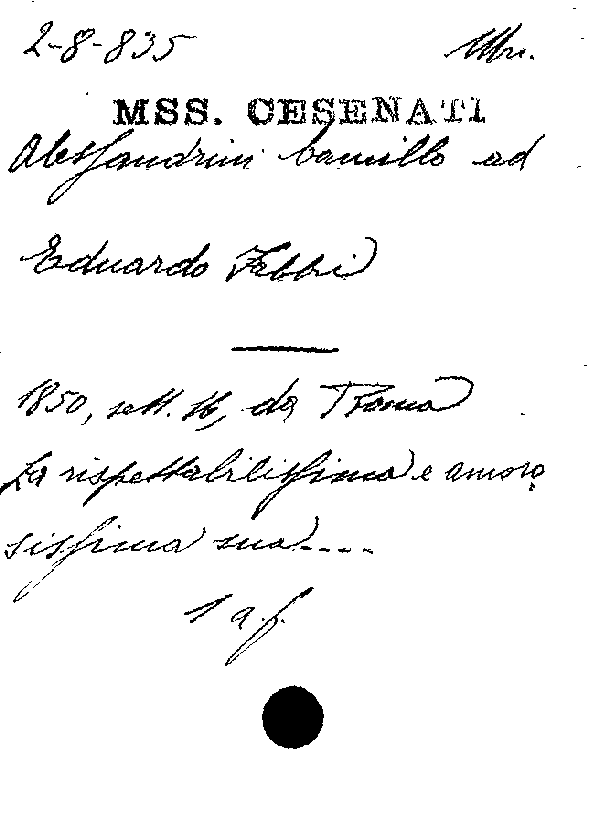 2-8-835
MSS. CESENATI
Alessandrini Camillo ad
Eduardo Fabbri
1850, sett. 16, da Roma
La rispettabilissima e amoro
sissima sua....
1 a.f.